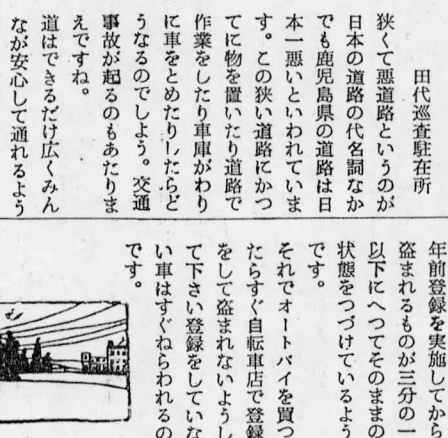 田代巡査駐在所
狭くて悪道路というのが
日本の道路の代名詞なか
でも鹿児島県の道路は日
本一悪いといわれていま
す。この狭い道路にかつ
てに物を置いたり道路で
作業をしたり車庫がわり
に車をとめたりしたらど
うなるのでしよう。交通
事故が起るのもあたりま
えですね。
道はできるだけ広くみん
なが安心して通れるよう
年前登録を実施してから
盗まれるものが三分の一
以下にへつてそのままの
状態をつづけているよう
です。
それでオートバイを買つ
たらすぐ自転車店で登録
をして盗まれないようし
て下さい登録をしていな
い車はすぐねらわれるの
です。